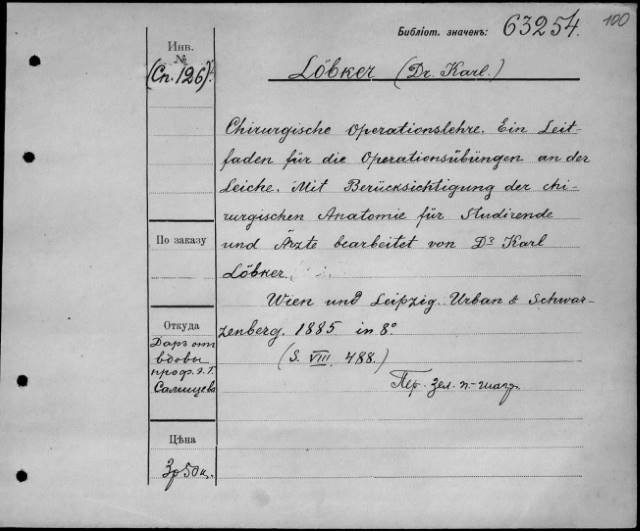 Библіот. значекъ: 63254. 100
Инв.
№
(Сп. 126).
Löbker (Dr. Karl.)
Chirurgische Operationslehre. Ein Leit-
faden für die Operationsübüngen an der
Leiche. Mit Berücksichtigung der chi-
rurgischen Anatomie für Studirende
und Ärzte bearbeitet von Dr Karl
Löbker.
По заказу
Wien und Leipzig. Urban & Schwar-
zenberg. 1885 in 8°
(S. VIII. 488.)
Откуда
Даръ отъ
вдовы
проф. Э. Г.
Салищева
Пер. зел. п.-шагр.
Цѣна
3р 50 к.